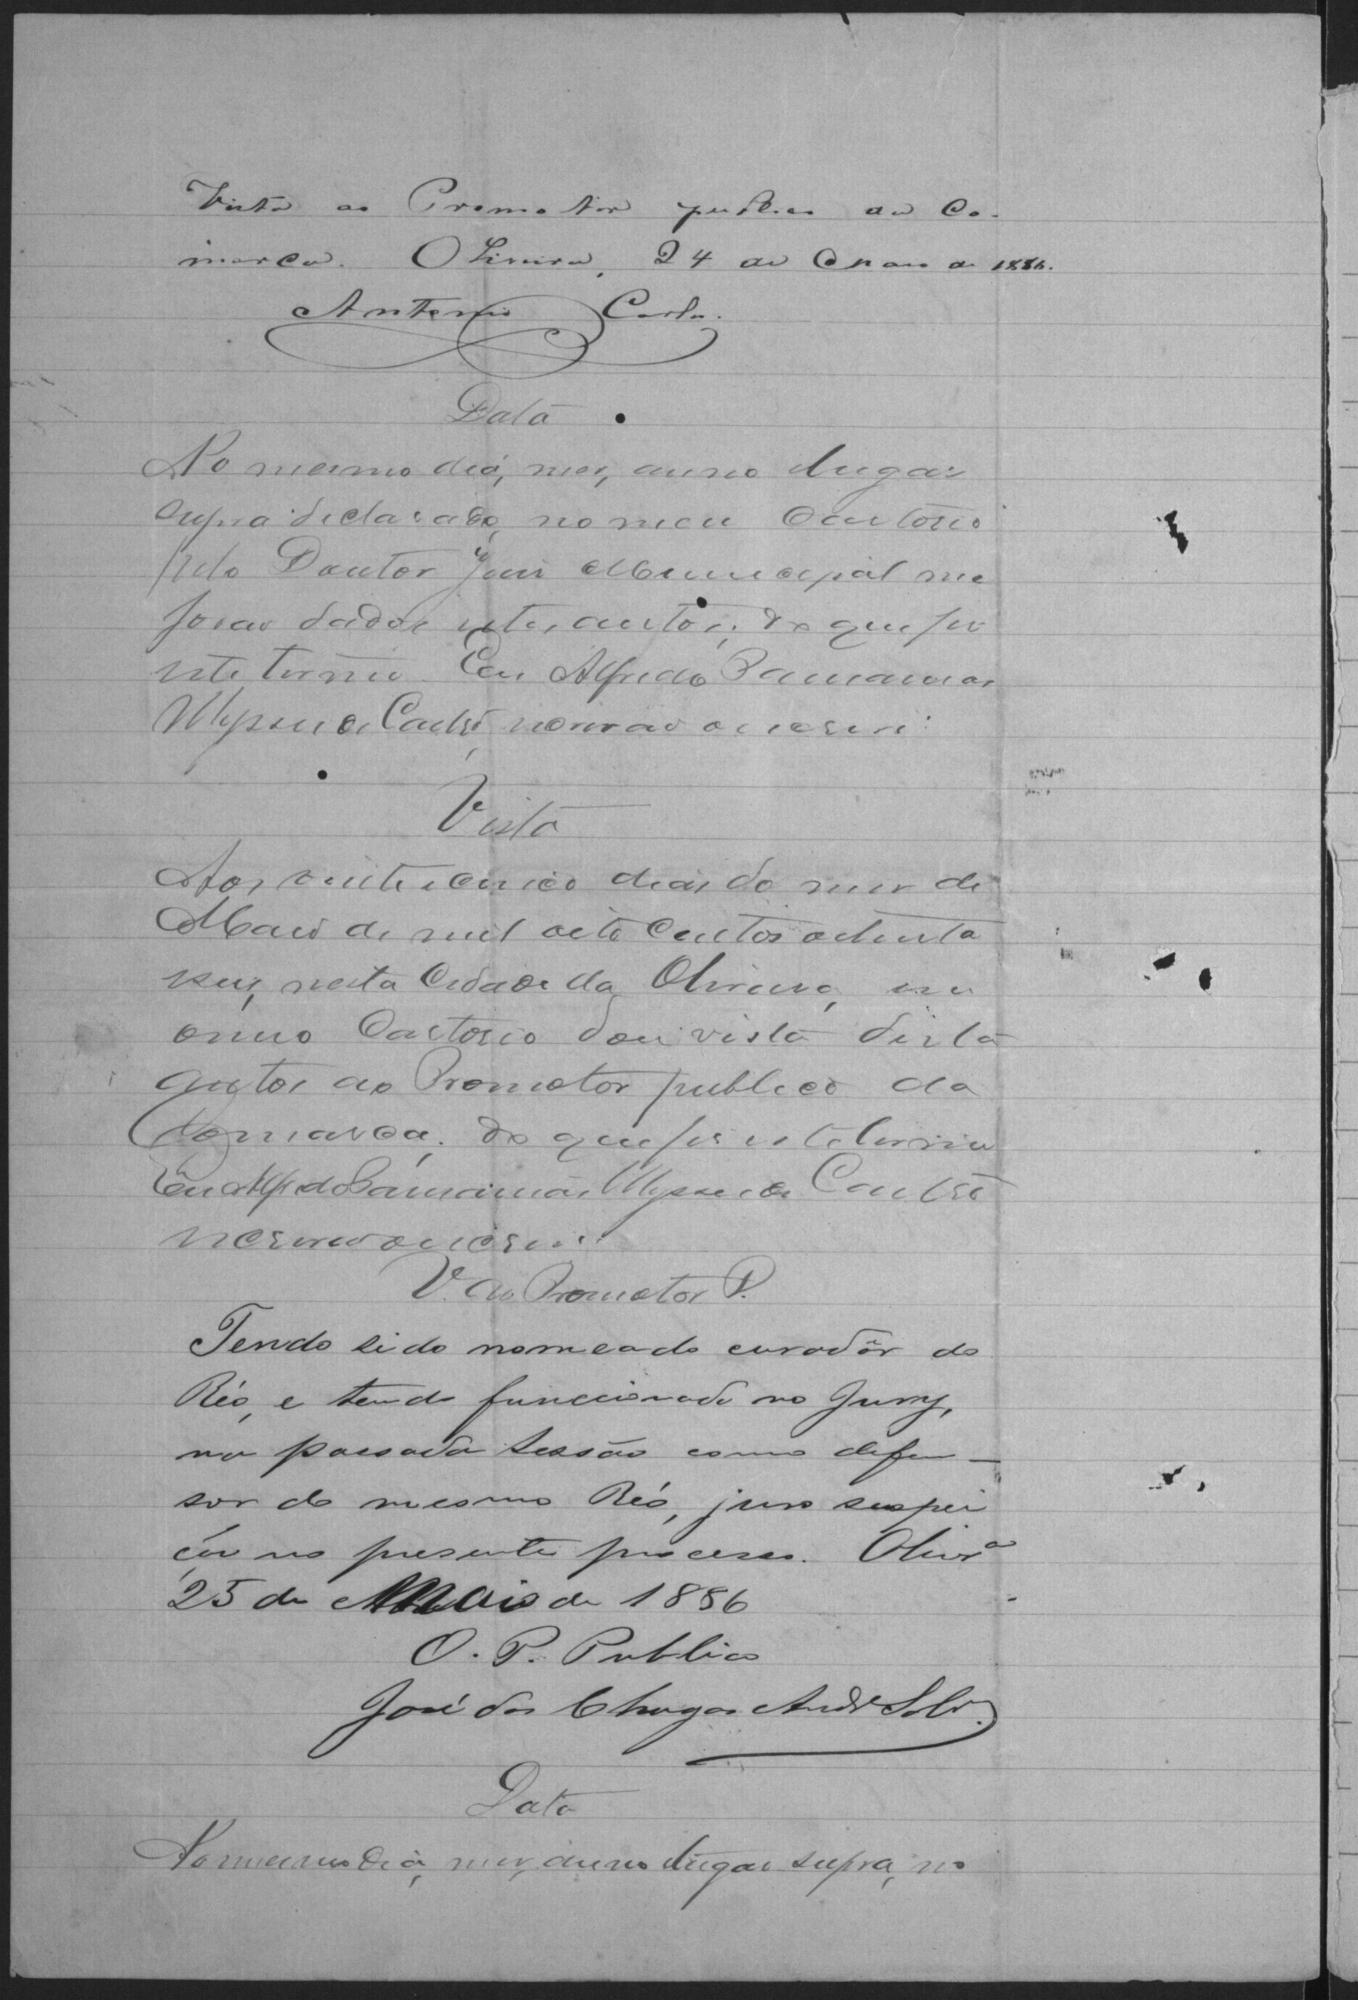 Vista ao Promotor publico da Co-
marca. Oliveira, 24 de Maio de 1886.
Antonio Carlos.
Data
No mesmo dia, mes, anno e lugar
supra declarado, no meu Cartorio
pelo Doutor Juis Municipal me
forao dados estes autos; do que fis
este termo. Eu Alfredo
de Castro, escrivão o escrevi.
Vista
Aos vinte e cinco dias do mes de
Maio de mil oito Centos oitenta
seis, nesta Cidade da Oliveira, em
o meu Cartorio dou vista destes
autos ao Promotor publico da
Comarca; do que fis este termo
Eu Alfredo de Castro
escrivão o escrevi.
V. ao Promotor P.
Tendo sido nomeado curadôr do
Réo, e tendo funccionado no Jury,
na passada sessão como defen-
sor do mesmo Réo, juro suspei
ção no presente processo. Olivrª
25 de Maio de 1886
O. P. Publico
José das Chagas Andе
Data
No mesmo dia, mes, anno e lugar supra, no